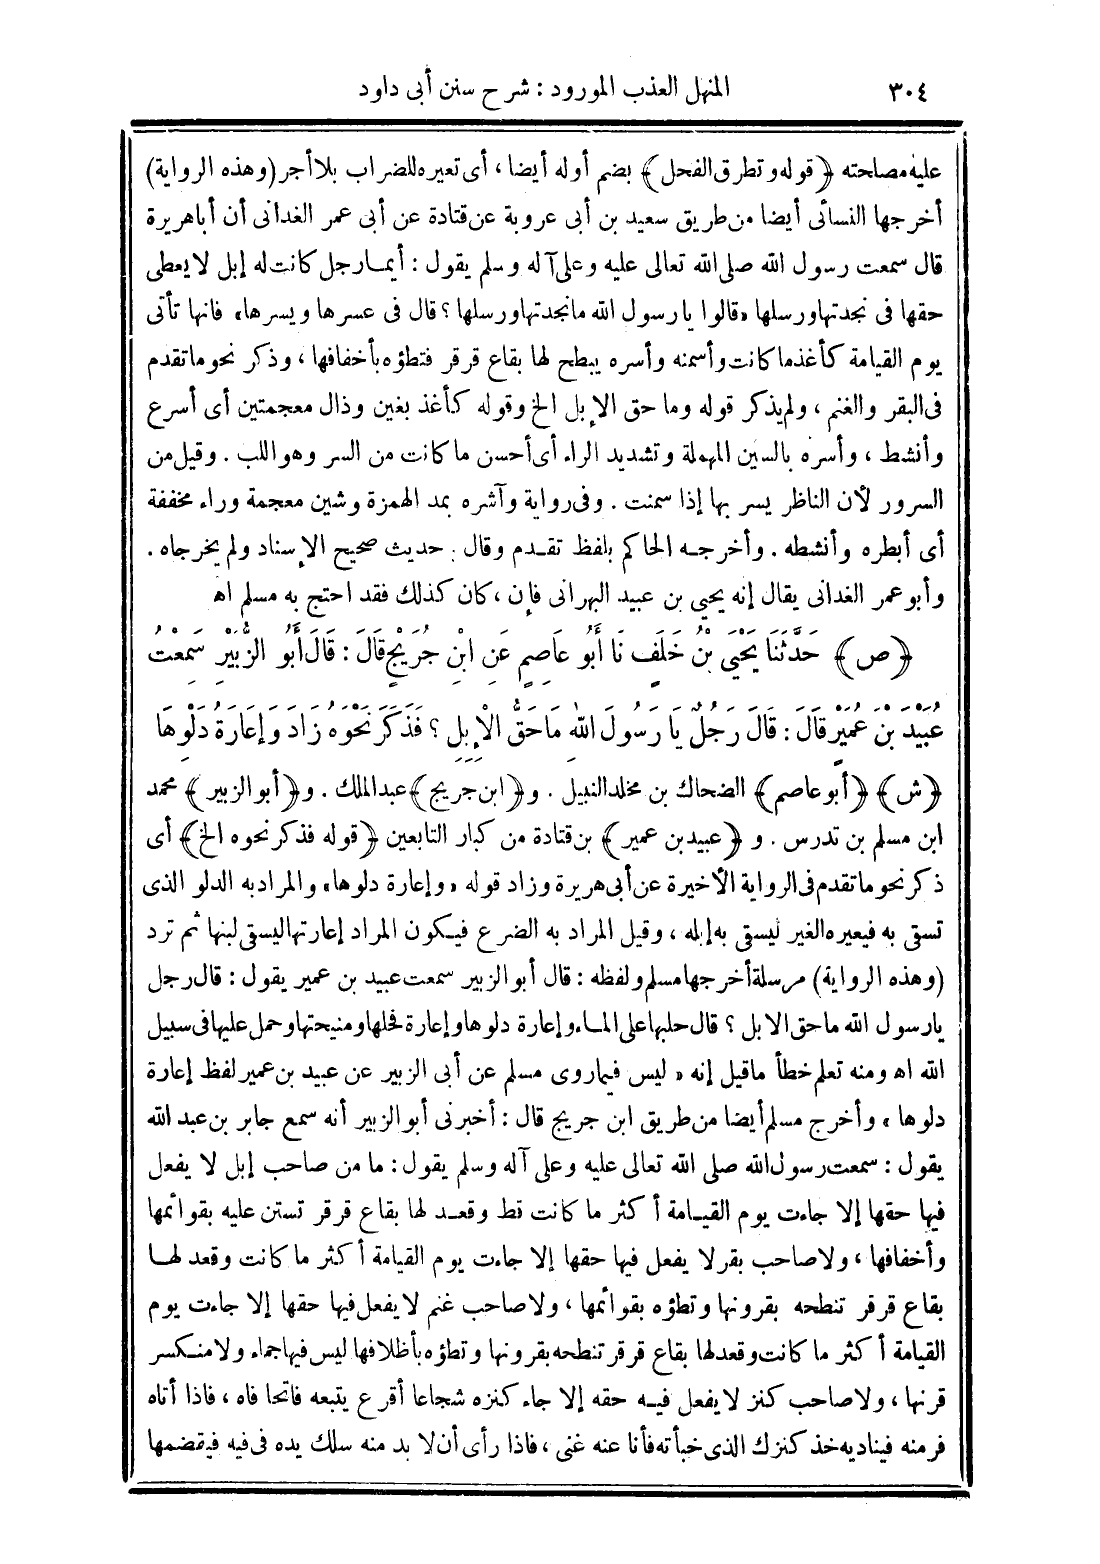 ٣٠٤ المنهل العذب المورود : شرح سنن أبى داود
عليه مصاحته ﴿قوله وتطرق الفحل﴾ بضم أوله أيضا ، أى تعيره للضراب بلا أجر (وهذه الرواية)
أخرجها النسائى أيضا من طريق سعيد بن أبى عروبة عن قتادة عن أبى عمر الغدانى أن أبا هريرة
قال سمعت رسول الله صلى الله تعالى عليه وعلى آله وسلم يقول : أيمـا رجل كانت له إبل لا يعطى
حقها فى نجدتها ورسلها «قالوا يا رسول الله ما نجدتها ورسلها ؟ قال فى عسرها ويسرها» فانها تأتى
يوم القيامة كأغذ ما كانت وأسمنه وأسره يبطح لها بقاع قرقر فتطؤه بأخفافها ، وذكر نحو ما تقدم
فى البقر والغنم ، ولم يذكر قوله وما حق الإبل الخ وقوله كأغذ بغين وذال معجمتين أى أسرع
وأنشط ، وأسره بالسين المهملة وتشديد الراء أى أحسن ما كانت من السر وهو اللب . وقيل من
السرور لأن الناظر يسر بها إذا سمنت . وفى رواية وآشره بمد الهمزة وشين معجمة وراء مخففة
أى أبطره وأنشطه . وأخرجـه الحاكم بلفظ تقـدم وقال : حديث صحيح الإسناد ولم يخرجاه .
وأبو عمر الغدانى يقال إنه يحيى بن عبيد البهرانى فإن ، كان كذلك فقد احتج به مسلم اه
﴿ص﴾ حَدَّثَنَا يَحْيَى بْنُ خَلَفٍ نَا أَبُو عَاصِمٍ عَنِ ابْنِ جُرَيْجٍ قَالَ : قَالَ أَبُو الزُّبَيْرِ سَمِعْتُ
عُبَيْدَ بْنَ عُمَيْرٍ قَالَ : قَالَ رَجُلٌ يَا رَسُولَ اللهِ مَا حَقُّ الْإِبِلِ ؟ فَذَكَرَ نَحْوَهُ زَادَ وَإِعَارَةُ دَلْوِهَا
﴿ش﴾ ﴿أبو عاصم﴾ الضحاك بن مخلد النبيل . و﴿ابن جريج﴾ عبد الملك . و﴿أبو الزبير﴾ محمد
ابن مسلم بن تدرس . و ﴿عبيد بن عمير﴾ بن قتادة من كبار التابعين ﴿قوله فذكر نحوه الخ﴾ أى
ذكر نحو ما تقدم فى الرواية الأخيرة عن أبى هريرة وزاد قوله «وإعارة دلوها» والمراد به الدلو الذى
تسقى به فيعيره الغير ليسقى به إبله ، وقيل المراد به الضرع فيـكون المراد إعارتها ليسقى لبنها ثم ترد
(وهذه الرواية) مرسلة أخرجها مسلم ولفظه : قال أبو الزبير سمعت عبيد بن عمير يقول : قال رجل
يا رسول الله ما حق الابل ؟ قال حلبها على المـاء وإعارة دلوها وإعارة فحلها ومنيحتها وحمل عليها فى سبيل
الله اه ومنه تعلم خطأ ما قيل إنه « ليس فيما روى مسلم عن أبى الزبير عن عبيد بن عمير لفظ إعارة
دلوها » وأخرج مسلم أيضا من طريق ابن جريج قال : أخبرنى أبو الزبير أنه سمع جابر بن عبد الله
يقول : سمعت رسول الله صلى الله تعالى عليه وعلى آله وسلم يقول : ما من صاحب إبل لا يفعل
فيها حقها إلا جاءت يوم القيـامة أكثر ما كانت قط وقعـد لها بقاع قرقر تستن عليه بقوائمها
وأخفافها ، ولا صاحب بقر لا يفعل فيها حقها إلا جاءت يوم القيامة أكثر ما كانت وقعد لهـا
بقاع قرقر تنطحه بقرونها وتطؤه بقوائمها ، ولا صاحب غنم لا يفعل فيها حقها إلا جاءت يوم
القيامة أكثر ما كانت وقعد لها بقاع قرقر تنطحه بقرونها وتطؤه بأظلافها ليس فيها جماء ولا منـكسر
قرنها ، ولا صاحب كنز لا يفعل فيـه حقه إلا جاء كنزه شجاعا أقرع يتبعه فاتحا فاه ، فاذا أتاه
فر منه فيناديه خذ كنزك الذى خبأته فأنا عنه غنى ، فاذا رأى أن لا بد منه سلك يده فى فيه فيقضمها